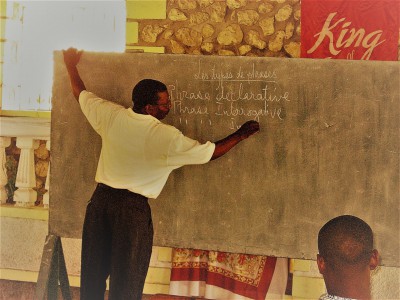 King
Les types de phrases
Phrase declarative
Phrase Interrogative
" " I